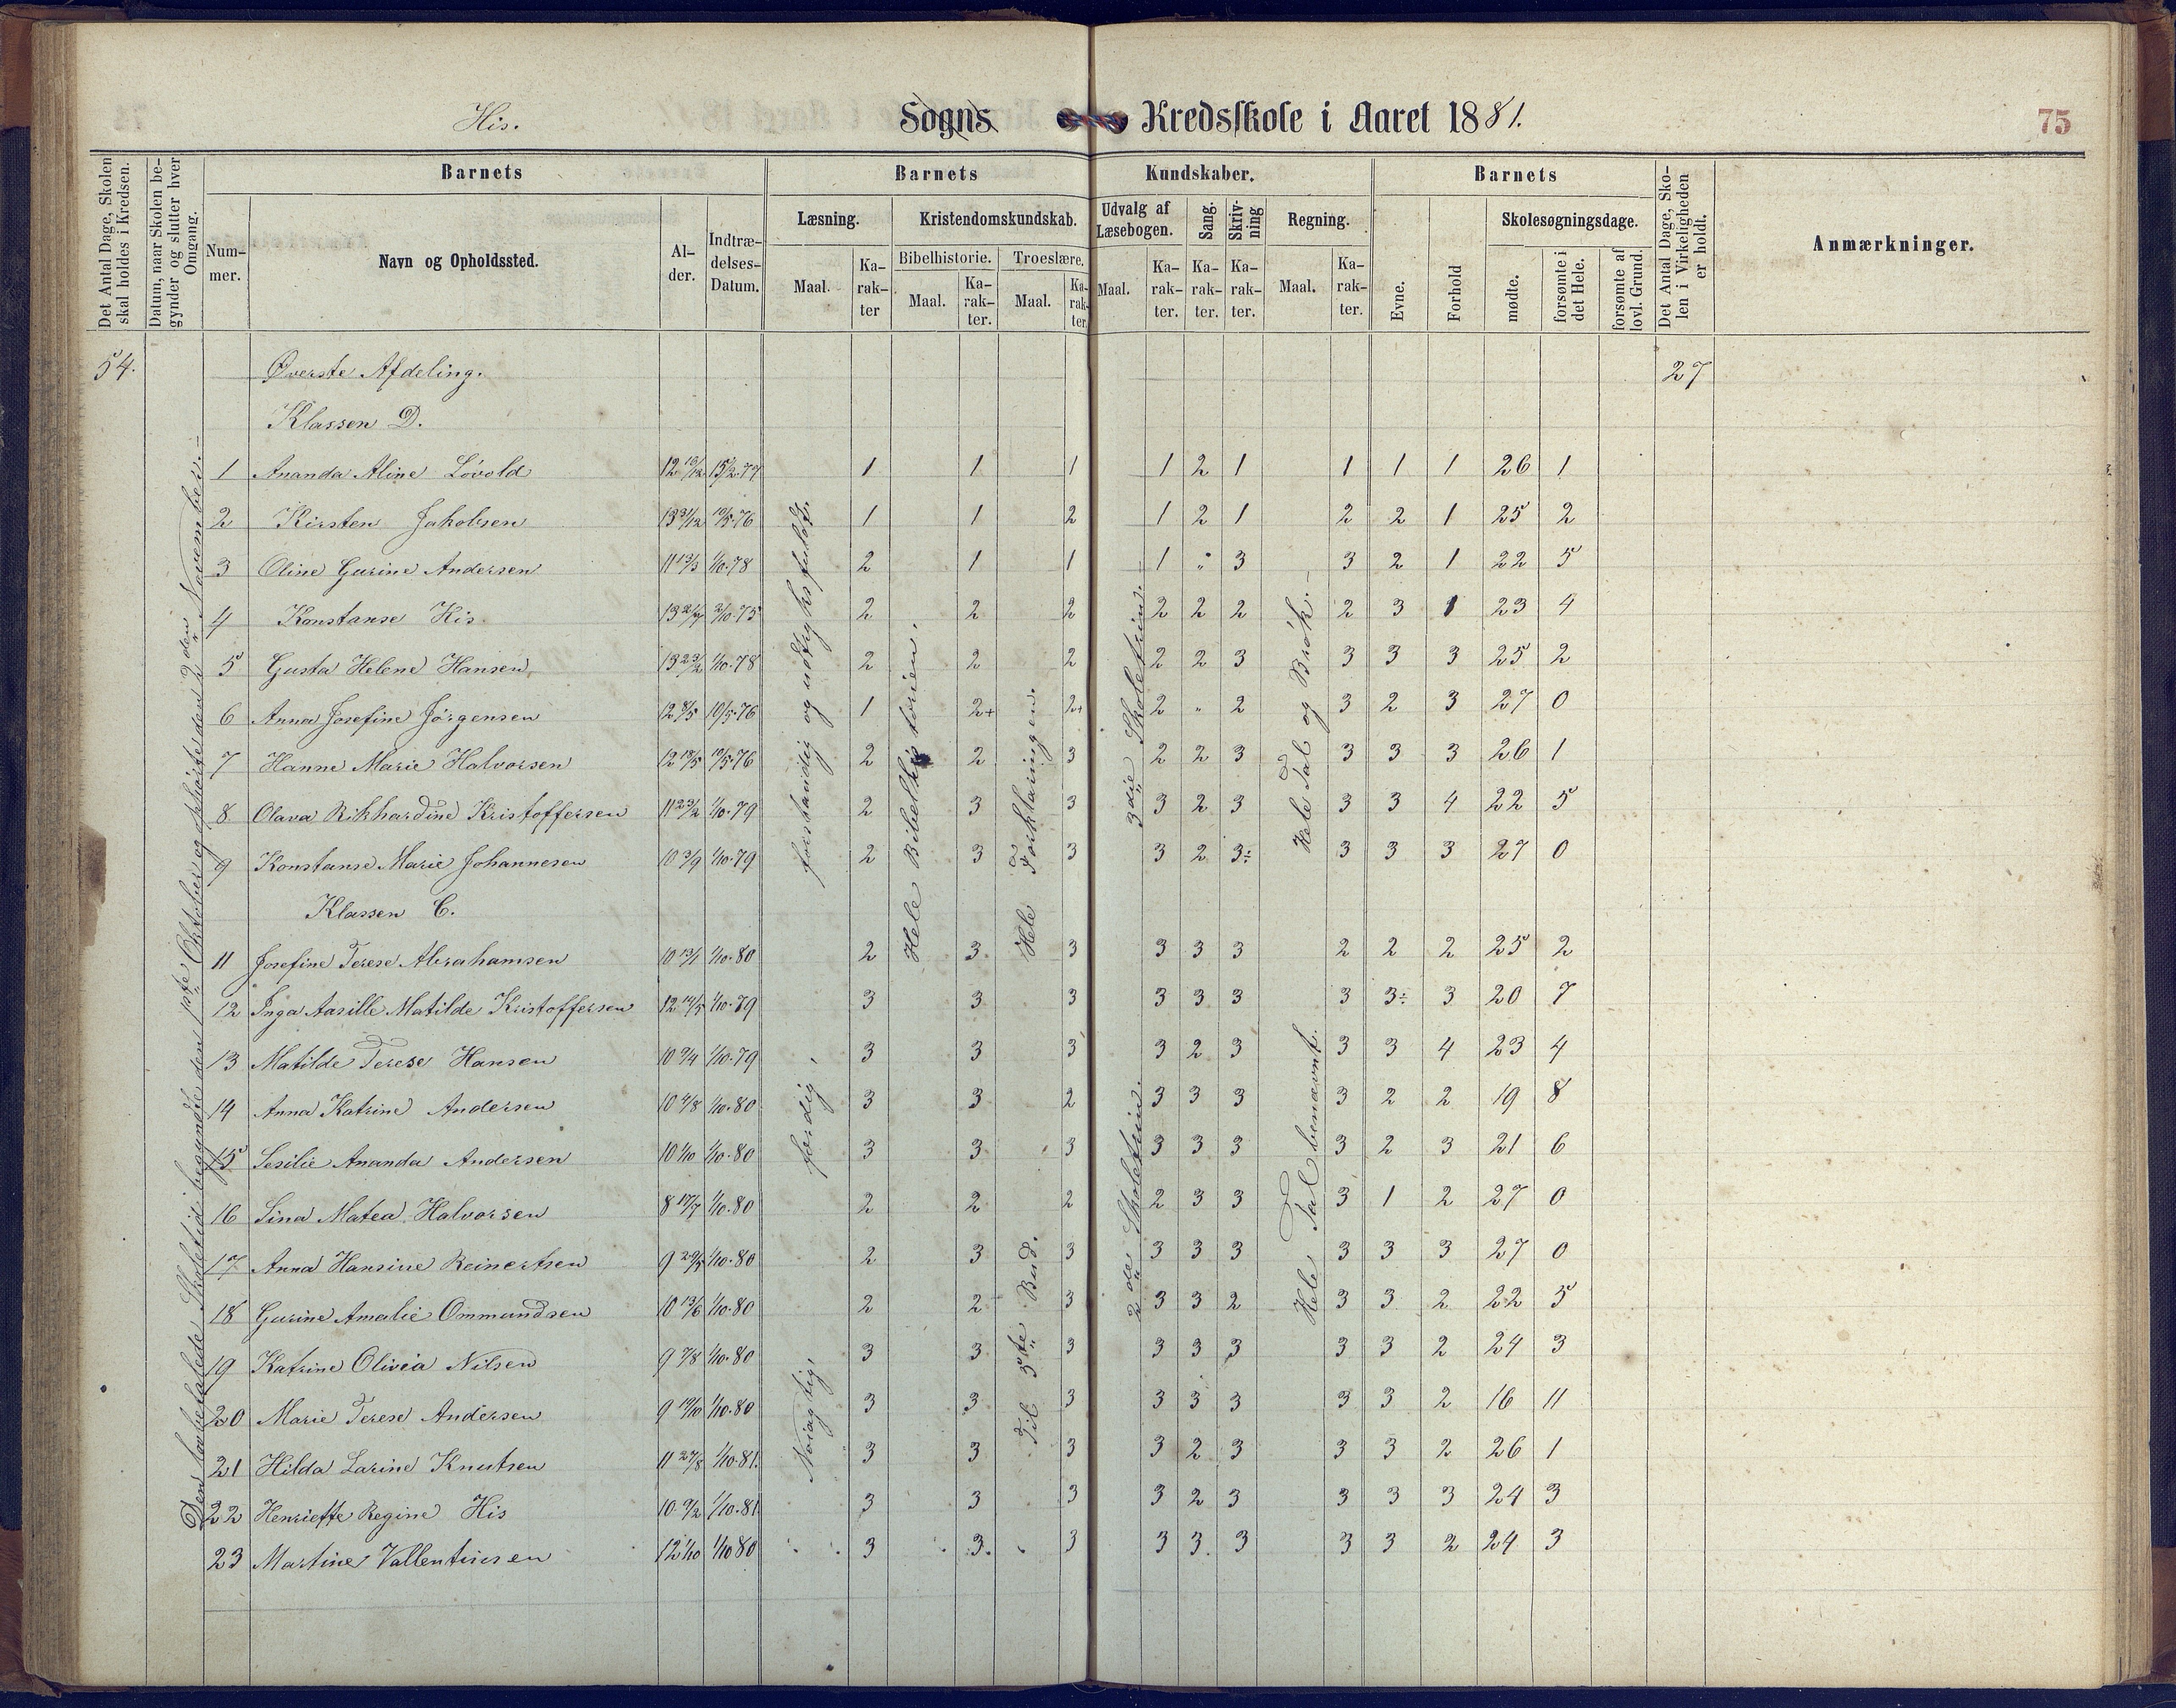 His. Sogns Kredsskole i Aaret 1881. 75
Det Antal Dage, Skolen skal holdes i Kredsen.
Datum, naar Skolen begynder og slutter hver Omgang.
Barnets Barnets Kundskaber. Barnets
Det Antal Dage, Skolen i Virkeligheden er holdt.
Anmærkninger.
Nummer. Navn og Opholdssted. Alder. Indtrædelses-Datum.
Læsning. Kristendomskundskab. Udvalg af Læsebogen. Sang. Skrivning Regning. Evne. Forhold Skolesøgningsdage.
Bibelhistorie. Troeslære.
Maal. Karakter Maal. Karakter. Maal. Karakter. Maal. Karakter. Karakter. Karakter. Maal. Karakter. mødte. forsømte i det Hele. forsømte af lovl. Grund.
54. Øverste Afdeling. 27
Klassen D.
1 Ananda Aline Lövold 12 10/12 15/2.77 1 1 1 1 2 1 1 1 1 26 1
2 Kirsten Jakobsen 13 31/12 10/5.76 1 1 2 1 2 1 2 2 1 25 2
3 Oline Gurine Andersen 11 13/3 1/10.78 2 1 1 1 " 3 3 2 1 22 5
4 Konstanse His 2/10.75 2 2 2 2 2 2 2 3 1 23 4
5 Gusta Helene Hansen 13 23/2 1/10.78 2 2 2 2 2 3 3 3 3 25 2
6 Anna Josefine Jörgensen 12 8/5 10/5.76 1 2+ 2+ 2 " 2 3 2 3 27 0
7 Hanne Marie Halvorsen 12 18/5 10/5.76 2 2 3 2 2 3 3 3 3 26 1
8 Olava Rikhardine Kristoffersen 11 23/2 1/10.79 2 3 3 3 2 3 3 3 4 22 5
9 Konstanse Marie Johannesen 10 3/9 1/10.79 2 3 3 3 2 3÷ 3 3 3 27 0
Klassen C.
11 Josefine Terese Abrahamsen 10 13/1 1/10.80 2 3. 3 3 3 3 2 2 2 25 2
12 Inga Aasille Matilde Kristoffersen 12 14/5 1/10.79 3 3 3 3 3 3 3 3÷ 3 20 7
13 Matilde Terese Hansen 10 9/4 1/10.79 3 3 3 3 2 3 3 3 4 23 4
14 Anna Katrine Andersen 10 4/8 1/10.80 3 3 2 3 3 3 3 2 2 19 8
15 Sesilie Ananda Andersen 10 1/10 1/10.80 3 3 3 3 3 3 3 2 3 21 6
16 Sina Matea Halvorsen 8 17/7 1/10.80 2 2 2 2 3 3 3 1 2 27 0
17 Anna Hansine Reinertsen 9 29/5 1/10.80 2 3 3 3 3 3 3 3 3 27 0
18 Gurine Amalie Ommundsen 10 13/6 1/10.80 2 2 3 3 3 2 3 3 2 22 5
19 Katrine Olivia Nilsen 9 7/8 1/10.80 3 3 3 3 3 3 3 3 2 24 3
20 Marie Terese Andersen 9 19/10 1/10.80 3 3 3 3 3 3 3 3 2 16 11
21 Hilda Larine Knutsen 11 27/8 1/10.81. 3 3 3 3 2 3 3 3 2 26 1
22 Henriette Regine His 10 9/2 1/10.81 3 3 3 3 2 3 3 3 3 24 3
23 Martine Vallentinsen 12 1/10 1/10 80 3 3. 3 3 3. 3 3 3 2 24 3
Den lovbefalede Skoletid begyndte den 1ste Oktober og ophörte den 2den November.
forstandig og udtryksfuldt.
færdig,
Nöiagtig,
Hele Bibelhistorien.
Hele Forklaringen.
Til 5te Bud.
3die Skoletrin.
2det Skoletrin.
Hele Tal og Brök.
Hele Tal benævnt.